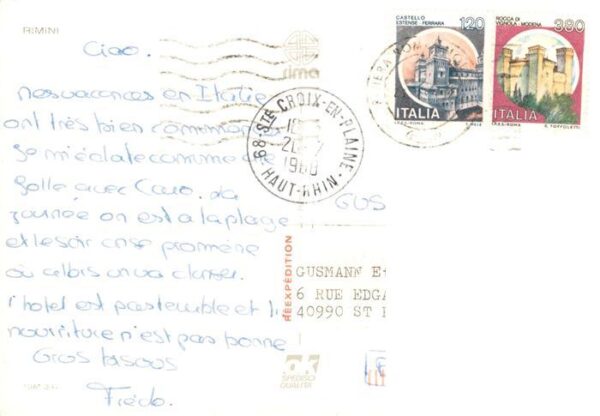 RIMINI
Ciao.
mes vacances en Italie
ont très bien commencé
Je m'éclate comme une
folle avec Caro. La
journée on est à la plage
et le soir on se promène
ou alors on va danser.
l'hotel est pas terrible et la
nourriture n'est pas bonne
Gros bisous
Frédo.
rima
CASTELLO
ESTENSE FERRARA
120
ITALIA
I.P.Z.S.-ROMA
ROCCA DI
VIGNOLA-MODENA
380
ITALIA
I.P.Z.S.-ROMA
68-STE CROIX-EN-PLAINE
HAUT-RHIN
1988
GUS
RÉEXPÉDITION
GUSMANN E
6 RUE EDGA
40990 ST
QUALITÄT